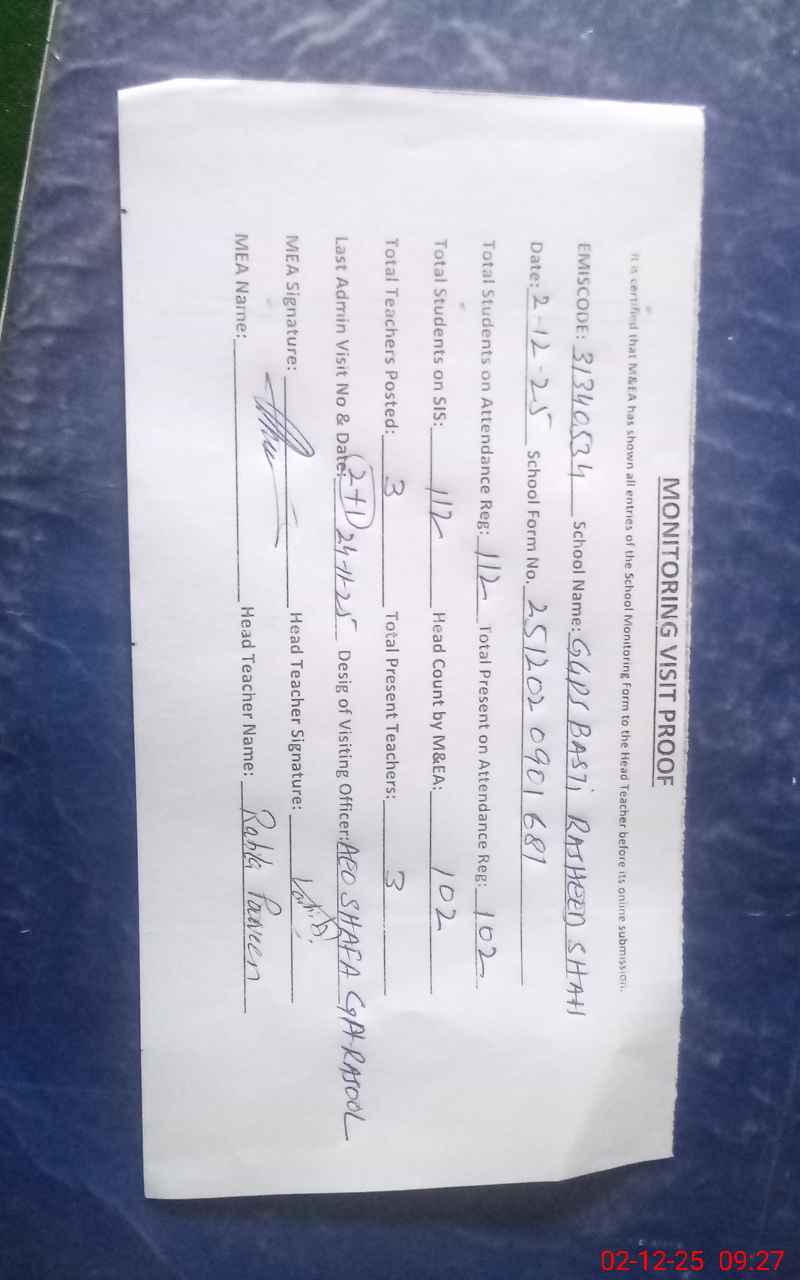 MONITORING VISIT PROOF
It is certified that M&EA has shown all entries of the School Monitoring Form to the Head Teacher before its online submission.
EMISCODE: 31340534 School Name: GGPS BASTi RASHEED SHAH
Date: 2-12-25 School Form No. 251202 0901 681
Total Students on Attendance Reg: 112 Total Present on Attendance Reg: 102
Total Students on SIS: 112 Head Count by M&EA: 102
Total Teachers Posted: 3 Total Present Teachers: 3
Last Admin Visit No & Date: (2+1) 24-11-25 Desig of Visiting Officer: AEO SHAFA GH-RASOOL
MEA Signature: Head Teacher Signature:
MEA Name: Head Teacher Name: Rabia Parveen
02-12-25 09:27